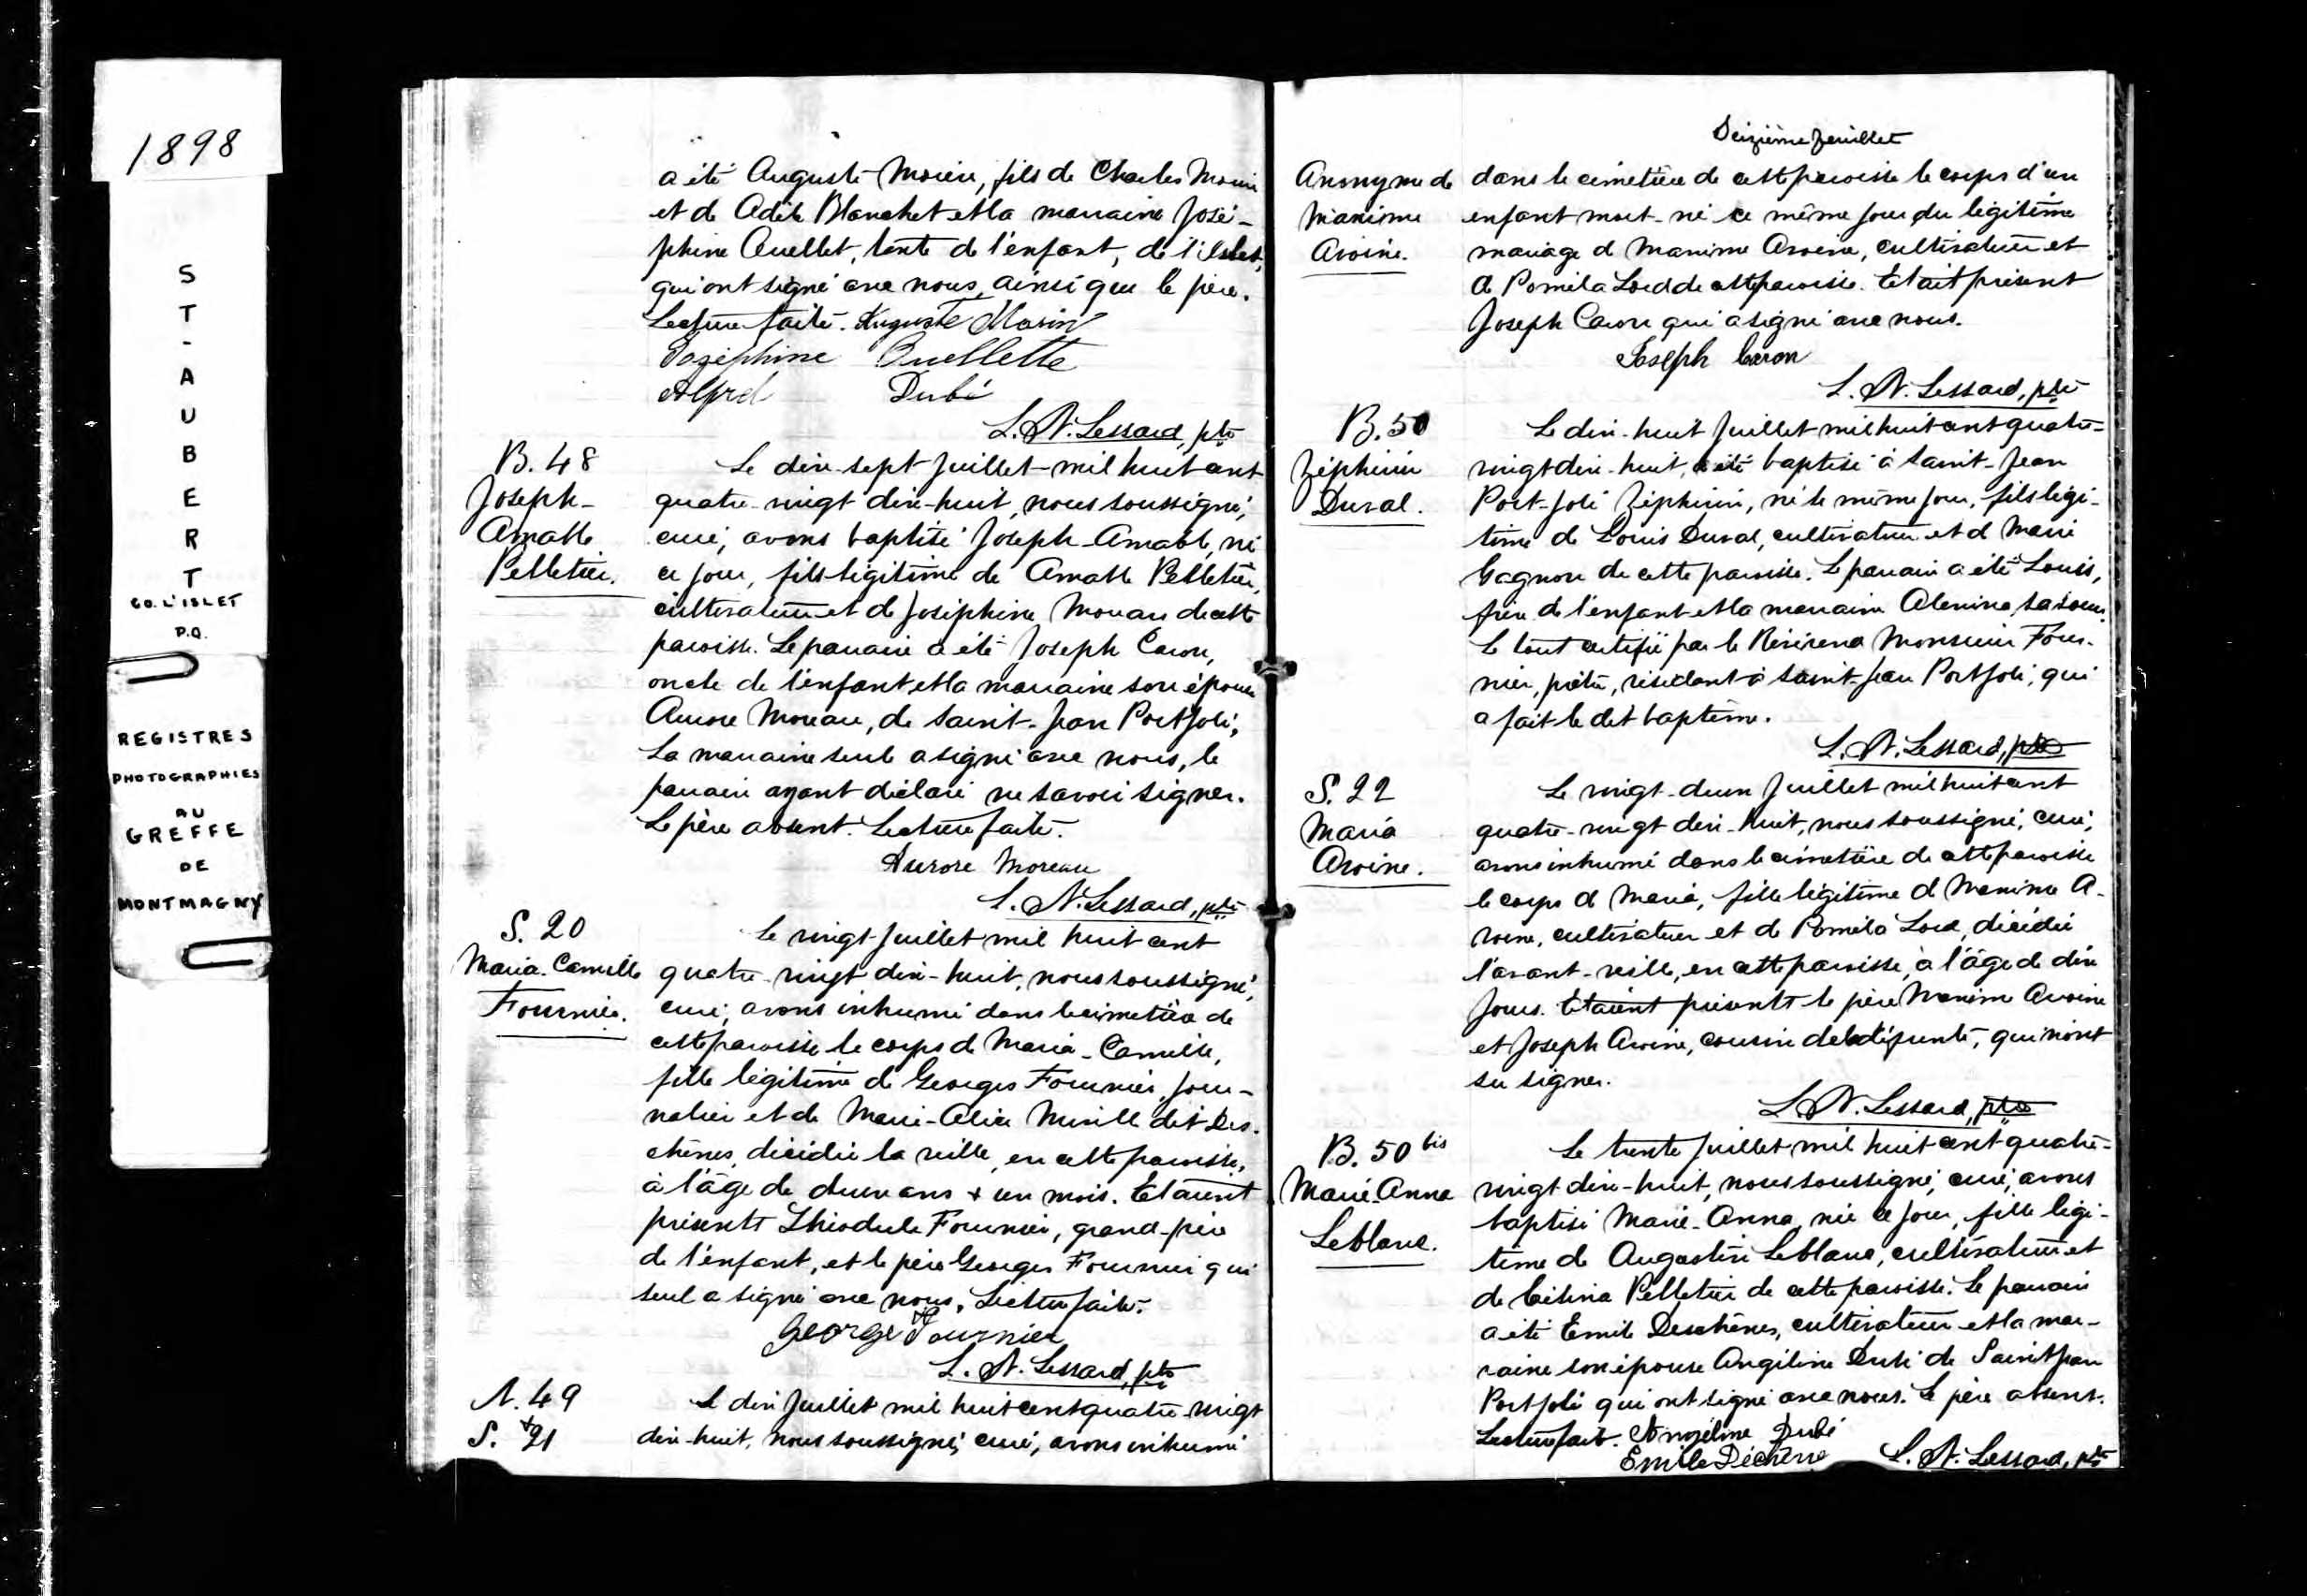 1898
S
T
-
A
U
B
E
R
T
CO. L'ISLET
P.Q.
REGISTRES
PHOTOGRAPHIES
AU
GREFFE
DE
MONTMAGNY
a été Auguste Morin, fils de Charles Morin
et de Adèle Blanchet et la marraine José-
phine Ouellet, tante de l'enfant, de l'Islet,
qui ont signé avec nous, ainsi que le père.
Lecture faite. Auguste Morin
Joséphine Ouellette
Alfred Dubé
L. N. Lessard, ptre
B. 48
Joseph-
Amable
Pelletier.
Le dix-sept Juillet mil huit cent
quatre-vingt dix-huit, nous soussigné,
curé, avons baptisé Joseph-Amable, né
ce jour, fils légitime de Amable Pelletier,
cultivateur et de Joséphine Moreau de cette
paroisse. Le parrain a été Joseph Caron,
oncle de l'enfant et la marraine son épouse
Aurore Moreau, de Saint-Jean Port Joli,
La marraine seule a signé avec nous, le
parrain ayant déclaré ne savoir signer.
Le père absent. Lecture faite.
Aurore Moreau
L. N. Lessard, ptre
S. 20
Maria-Camille
Fournier.
Le vingt Juillet mil huit cent
quatre-vingt dix-huit, nous soussigné,
curé, avons inhumé dans le cimetière de
cette paroisse le corps de Maria-Camille,
fille légitime de Georges Fournier, jour-
nalier et de Marie-Alice Miville dit Des-
chênes, décédée la veille, en cette paroisse,
à l'âge de deux ans & un mois. Etaient
présents Théodule Fournier, grand-père
de l'enfant, et le père Georges Fournier qui
seul a signé avec nous. Lecture faite.
George Fournier
L. N. Lessard, ptre
N. 49
S. +21
Le dix Juillet mil huit cent quatre-vingt
dix-huit, nous soussigné, curé, avons inhumé
Seizième feuillet
Anonyme de
Maxime
Avoine.
dans le cimetière de cette paroisse le corps d'un
enfant mort-né ce même jour du légitime
mariage de Maxime Avoine, cultivateur et
de Pomela Lord de cette paroisse. Etait présent
Joseph Caron qui a signé avec nous.
Joseph Caron
L. N. Lessard, ptre
B. 50
Zéphirin
Duval.
Le dix-huit Juillet mil huit cent quatre-
vingt dix-huit, a été baptisé à Saint-Jean
Port-Joli Zéphirin, né le même jour, fils légi-
time de Louis Duval, cultivateur et de Marie
Gagnon de cette paroisse. Le parrain a été Louis,
frère de l'enfant et la marraine Alexina, sa soeur.
Le tout certifié par le Révérend Monsieur Four-
nier, prêtre, résidant à Saint-Jean Port Joli, qui
a fait le dit baptême.
L. N. Lessard, ptre
S. 22
Maria
Avoine.
Le vingt-deux Juillet mil huit cent
quatre-vingt dix-huit, nous soussigné, curé,
avons inhumé dans le cimetière de cette paroisse
le corps de Maria, fille légitime de Maxime A-
voine, cultivateur et de Pomela Lord, décédée
l'avant-veille, en cette paroisse, à l'âge de dix
jours. Etaient présents le père Maxime Avoine
et Joseph Avoine, cousin de la défunte, qui n'ont
su signer.
L. N. Lessard, ptre
B. 50 bis
Marie-Anna
Leblanc.
Le trente Juillet mil huit cent quatre-
vingt dix-huit, nous soussigné, curé, avons
baptisé Marie-Anna, née ce jour, fille légi-
time de Augustin Leblanc, cultivateur et
de Célina Pelletier de cette paroisse. Le parrain
a été Emile Deschênes, cultivateur et la mar-
raine son épouse Angéline Dubé de Saint Jean
Port Joli qui ont signé avec nous. Le père absent.
Lecture faite. Angéline Dubé
Emile Déchène L. N. Lessard, ptre